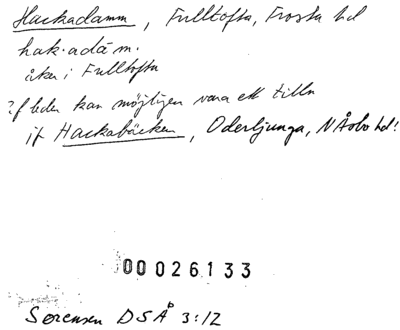 Hackadamm, Fulltofta, Frosta hd
hak·adám.
åker i Fulltofta
?f leden kan möjligen vara ett tilln
jf Hackabäcken, Oderljunga, NÅsbo hd!
00026133
Sørensen DSÅ 3:12